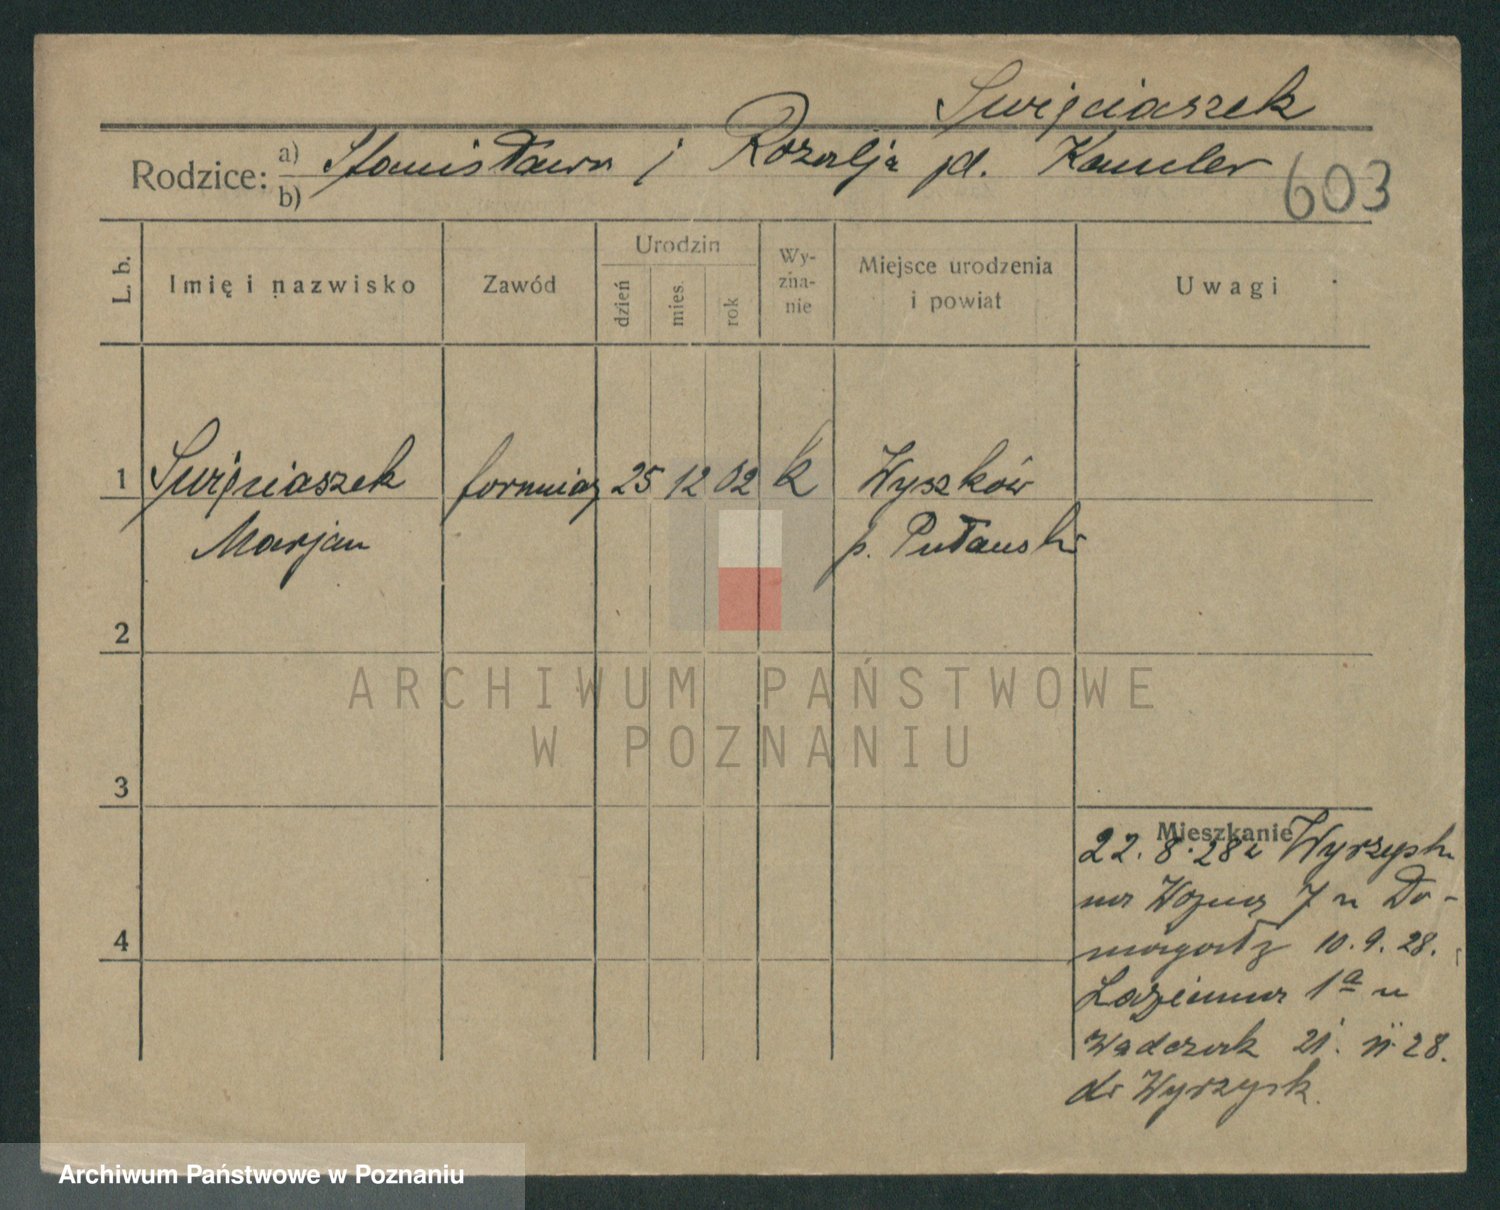 Swięciaszek
Rodzice: a) Stanisława i Rozalja pd. Kamler
b)
603
L. b. Imię i nazwisko Zawód Urodzin dzień mies. rok Wy-zna-nie Miejsce urodzenia i powiat Uwagi
1 Swięciaszek formiarz 25 12 02 k Wyszków
Marjan p. Pułtuski
2
3
4
Mieszkanie
22. 8. 28 z Wyrzysk
na 7 u Do-
10. 9. 28.
Łazienna 1a u
21. 11 28.
do Wyrzysk.
ARCHIWUM PAŃSTWOWE
W POZNANIU
Archiwum Państwowe w Poznaniu